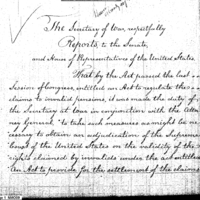 The Secretary of War respectfully
Reports, to the Senate,
and House of Representatives of the United States
That by the Act passed the last
Session of Congress, entitled an Act to regulate the
claims to invalid pensions, it was made the duty of
the Secretary at War in conjunction with the Attor-
ney General "to take such measures as might be ne-
cessary to obtain an adjudication of the Supreme
Court of the United States on the validity of the
rights claimed by invalids under the act entitled
An Act to provide for the settlement of the claims